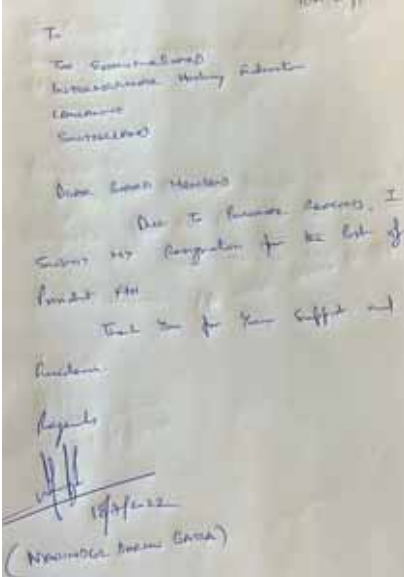 To
The Executive Board
International Hockey Federation
Lausanne
Switzerland
Dear Board Members
Due To Personal Reasons, I
Submit my Resignation for the Post of
President FIH
Thank You for Your Support and
Guidance.
Regards
18/7/2022
(NARINDER DHRUV BATRA)